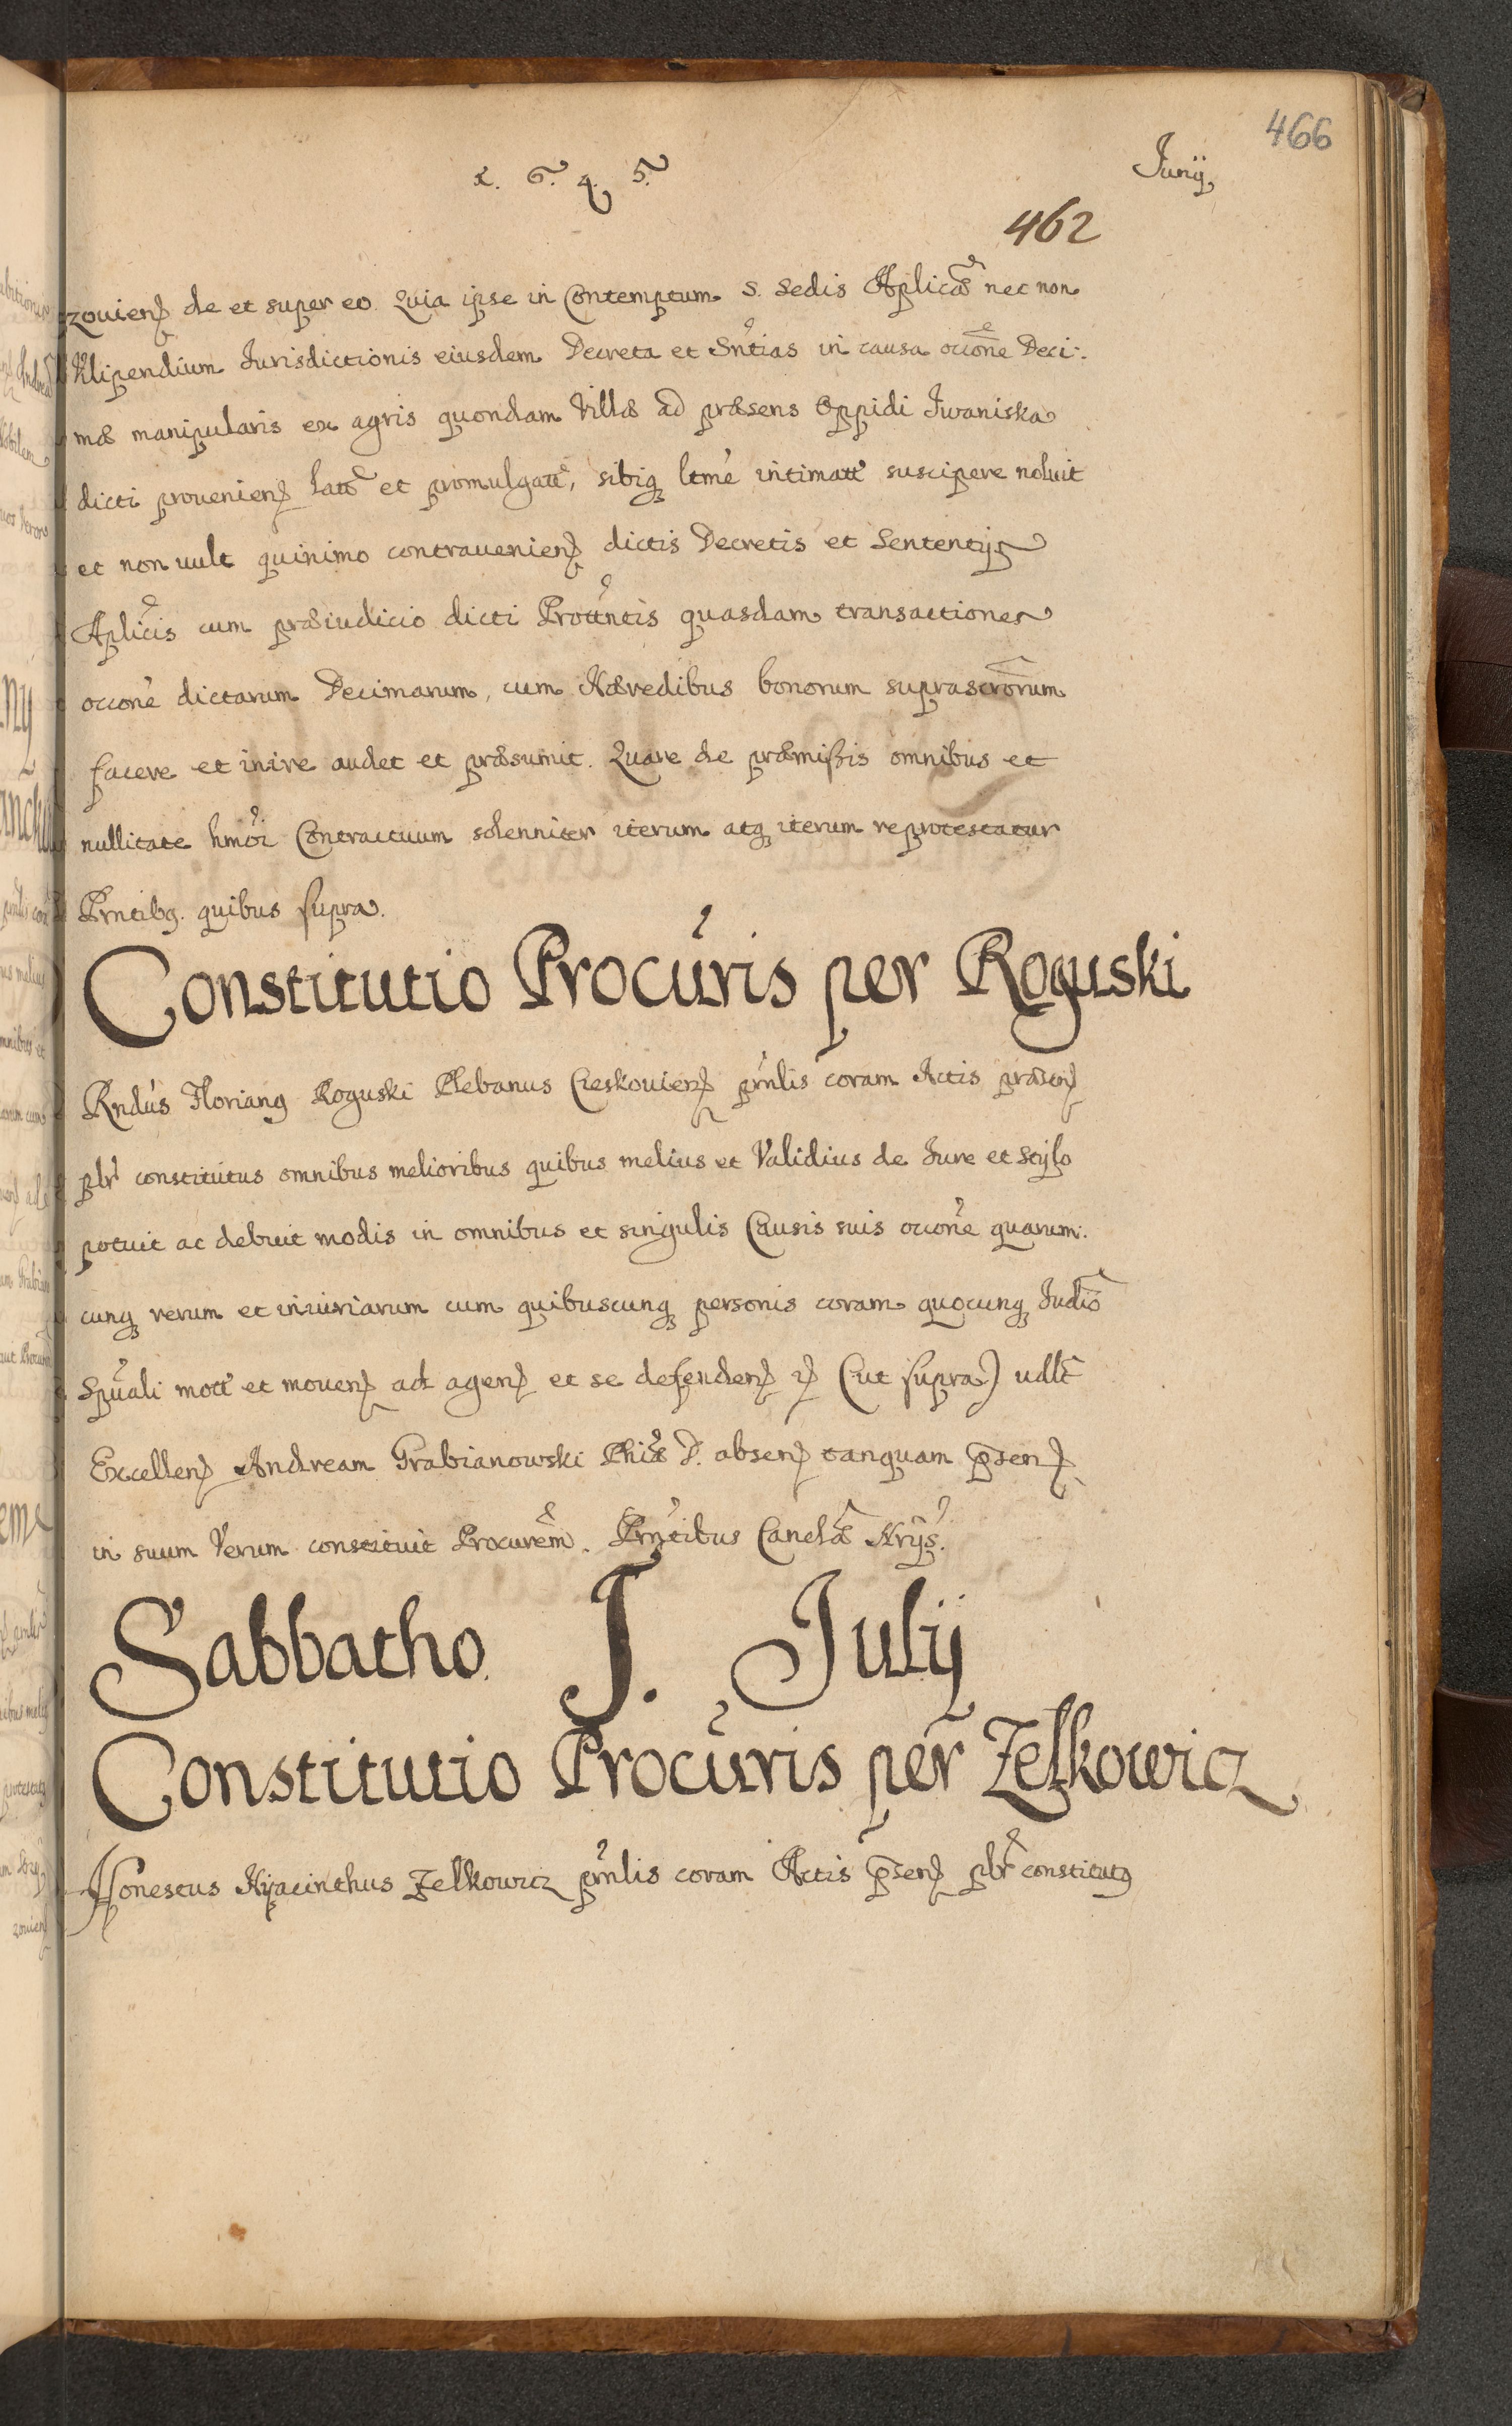 466
Junij
1. 6. 4. 5.
462
zouien de et super eo Quia ipse in Contemptum S. Sedis Aplicæ nec non
Vlipendium Jurisdictionis eiusdem Decreta et Sntias in causa occone Deci:
mæ manipularis ex agris quondam Villæ ad præsens Oppidi Jwaniska
dicti prouenien latt et promulgatt, sibiq ltme intimatt suscipere noluit
et non uult quinimo contrauenien dictis Decretis et Sententijs
Aplicis cum præiudicio dicti Prottntis quasdam transactiones
occone dictarum Decimarum, cum Hæredibus bonorum suprascrorum
facere et inire audet et præsumit. Quare de præmissis omnibus et
nullitate hmoi Contractuum solenniter iterum atq iterum reprotestatur
Prntibg. quibus supra.
Constitutio Procuris per Roguski
Rndus Floriang Roguski Plebanus Cieskouien prnlis coram Actis præsen
plr constitutus omnibus melioribus quibus melius et Validius de Jure et Stylo
potuit ac debuit modis in omnibus et singulis Causis suis occone quarum:
cunq rerum et iniuriarum cum quibuscunq personis coram quocunq Judio
Spuali mott et mouen ad agen et se defenden (ut supra) udlt
Excellen Andream Grabianowski Phiæ D. absen tanquam psen
in suum Verum constituit Procurem. Prntibus Canclæ Nrijs.
Sabbatho J. Julij
Constitutio Procuris per Zelkowicz
Honestus Hyacinthus Zelkowicz prnlis coram Actis psen plr constitutg